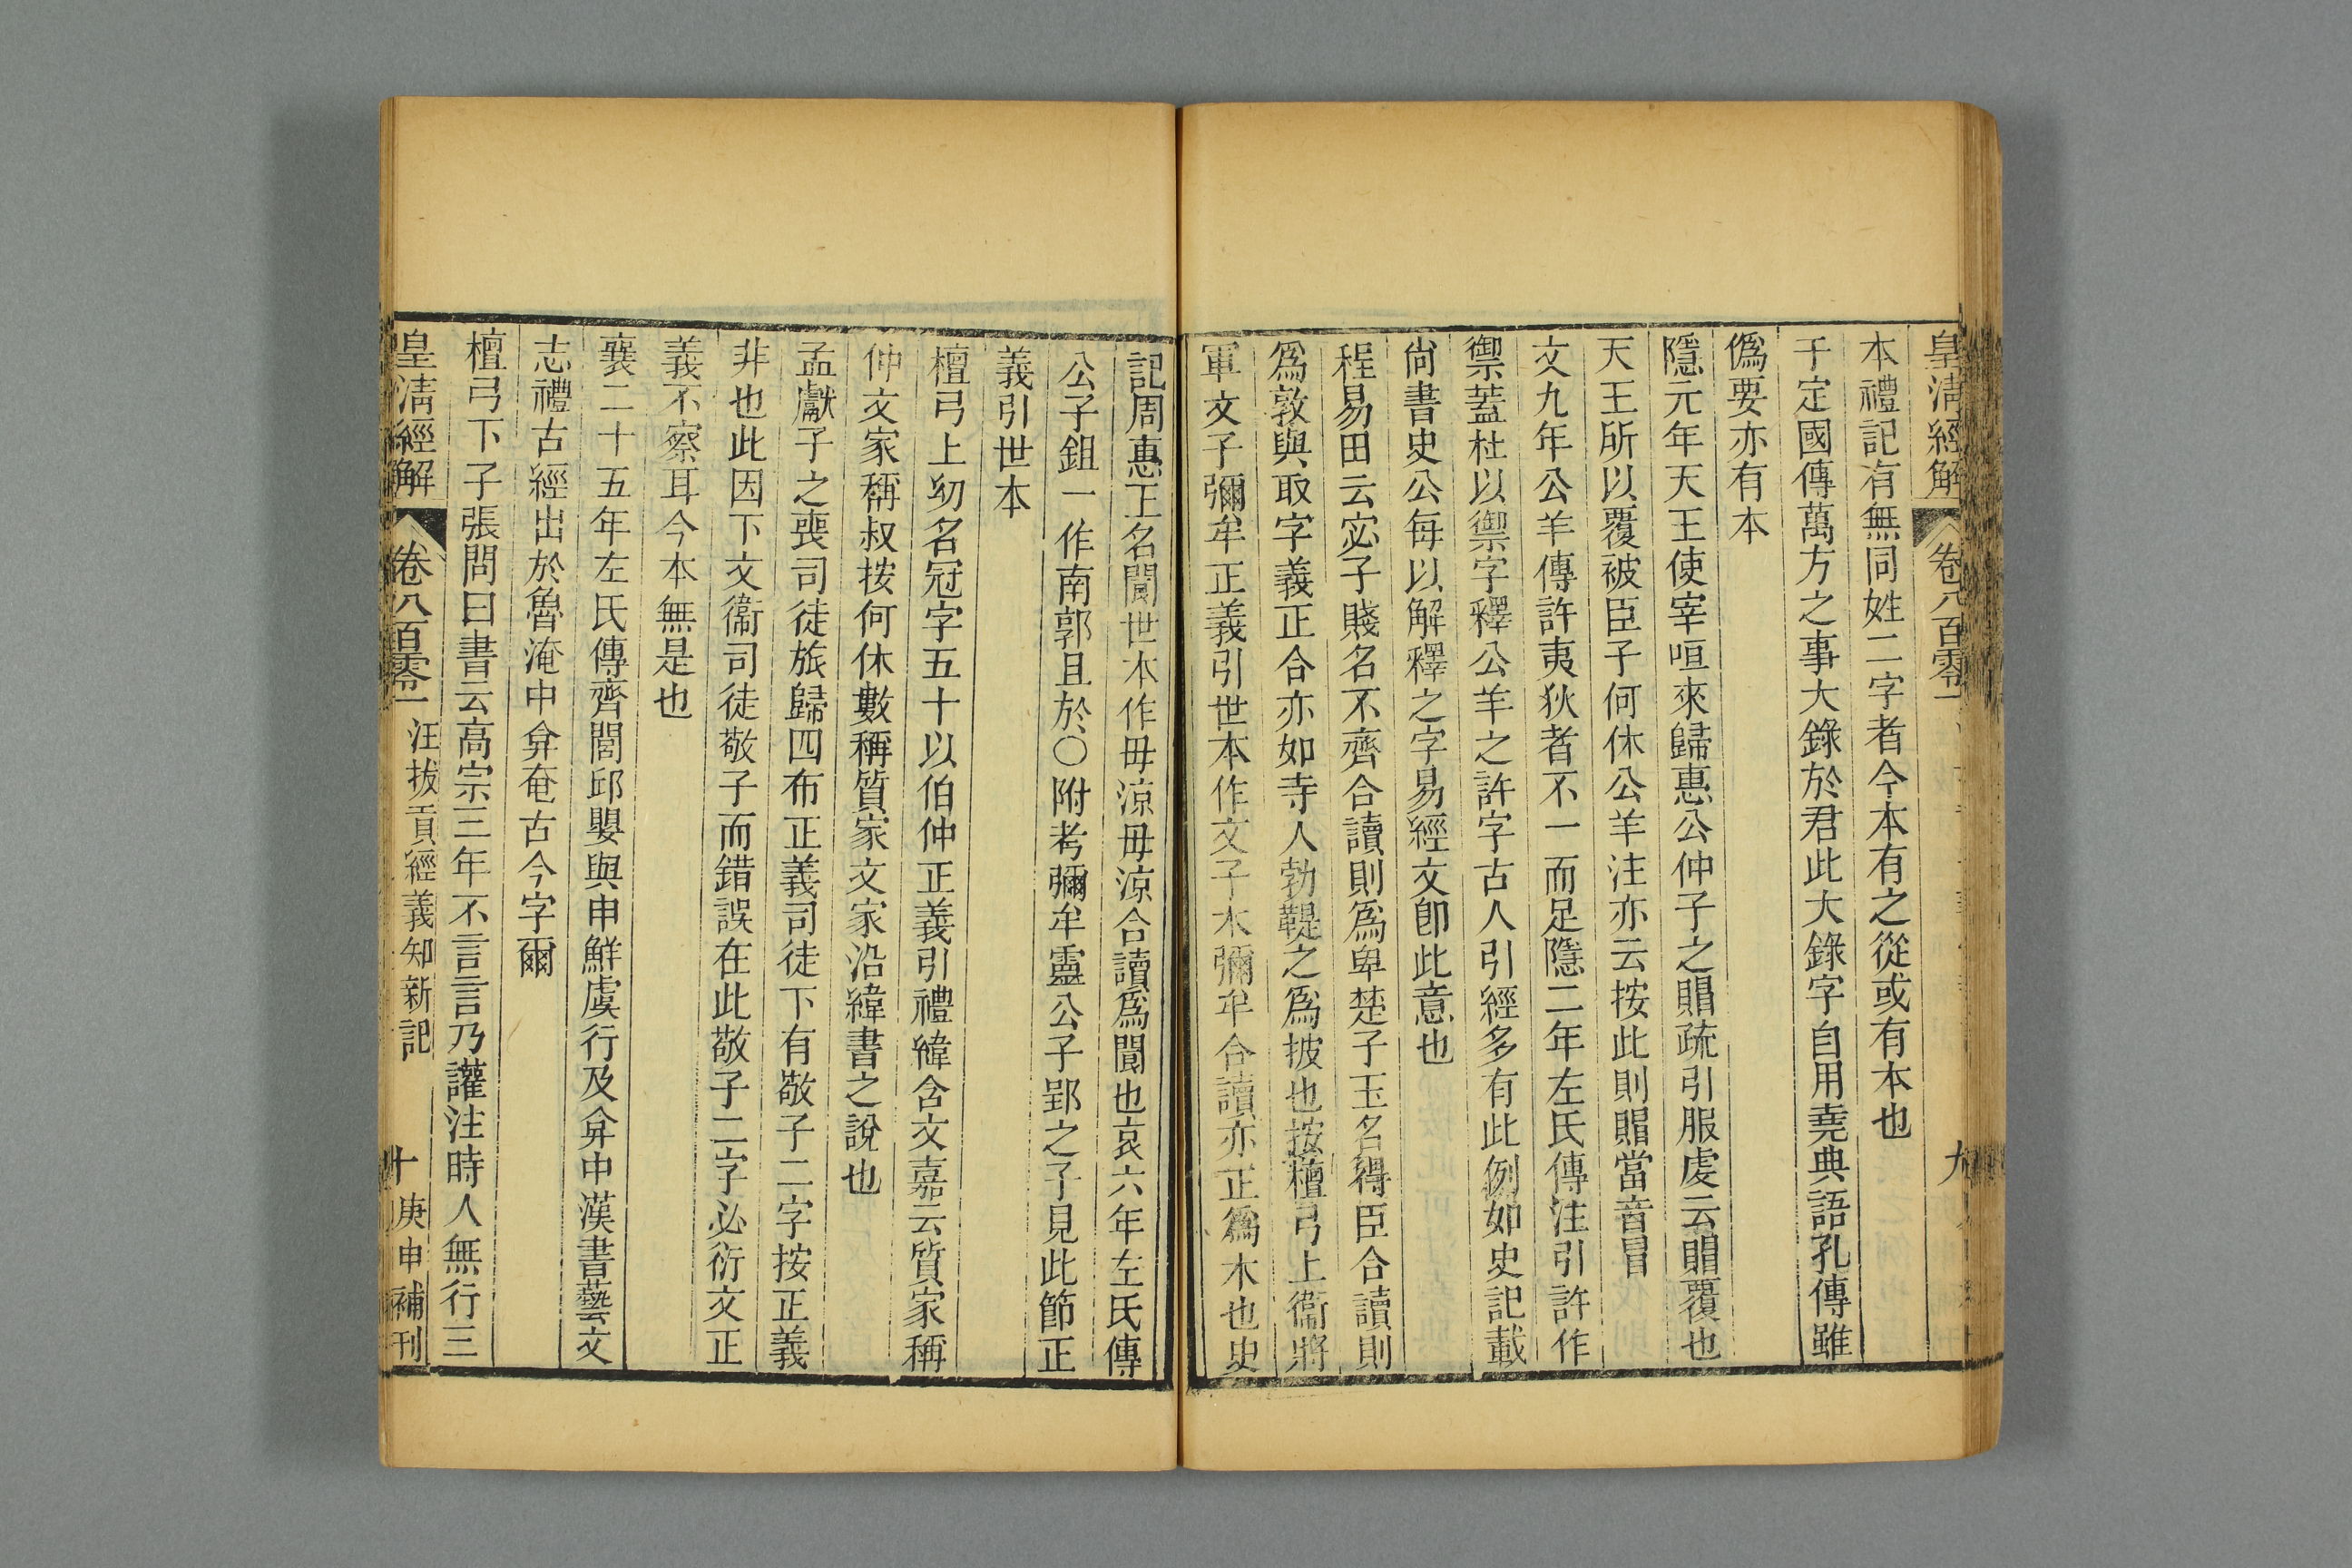 皇淸經解
卷八百零一
九
本禮記有無同姓二字者今本有之從或有本也
千定國傳萬方之事大錄於君此大錄字自用堯典語孔傳雖
僞要亦有本
隱元年天王使宰咺來歸惠公仲子之賵疏引服虔云賵覆也
天王所以覆被臣子何休公羊注亦云按此則賵當音冒
文九年公羊傳許夷狄者不一而足隱二年左氏傳注引許作
禦蓋杜以禦字釋公羊之許字古人引經多有此例如史記載
尙書史公每以解釋之字易經文卽此意也
程易田云宓子賤名不齊合讀則爲卑楚子玉名得臣合讀則
爲敦與取字義正合亦如寺人勃鞮之爲披也按檀弓上衞將
軍文子彌牟正義引世本作文子木彌牟合讀亦正爲木也史
記周惠王名閬世本作毋涼毋涼合讀爲閬也哀六年左氏傳
公子鉏一作南郭且於〇附考彌牟靈公子郢之子見此節正
義引世本
檀弓上幼名冠字五十以伯仲正義引禮緯含文嘉云質家稱
仲文家稱叔按何休數稱質家文家沿緯書之說也
孟獻子之喪司徒旅歸四布正義司徒下有敬子二字按正義
非也此因下文衞司徒敬子而錯誤在此敬子二字必衍文正
義不察耳今本無是也
襄二十五年左氏傳齊閭邱嬰與申鮮虞行及弇中漢書藝文
志禮古經出於魯淹中弇奄古今字爾
檀弓下子張問曰書云高宗三年不言言乃讙注時人無行三
皇淸經解
卷八百零一
汪拔貢經義知新記
十
庚申補刊